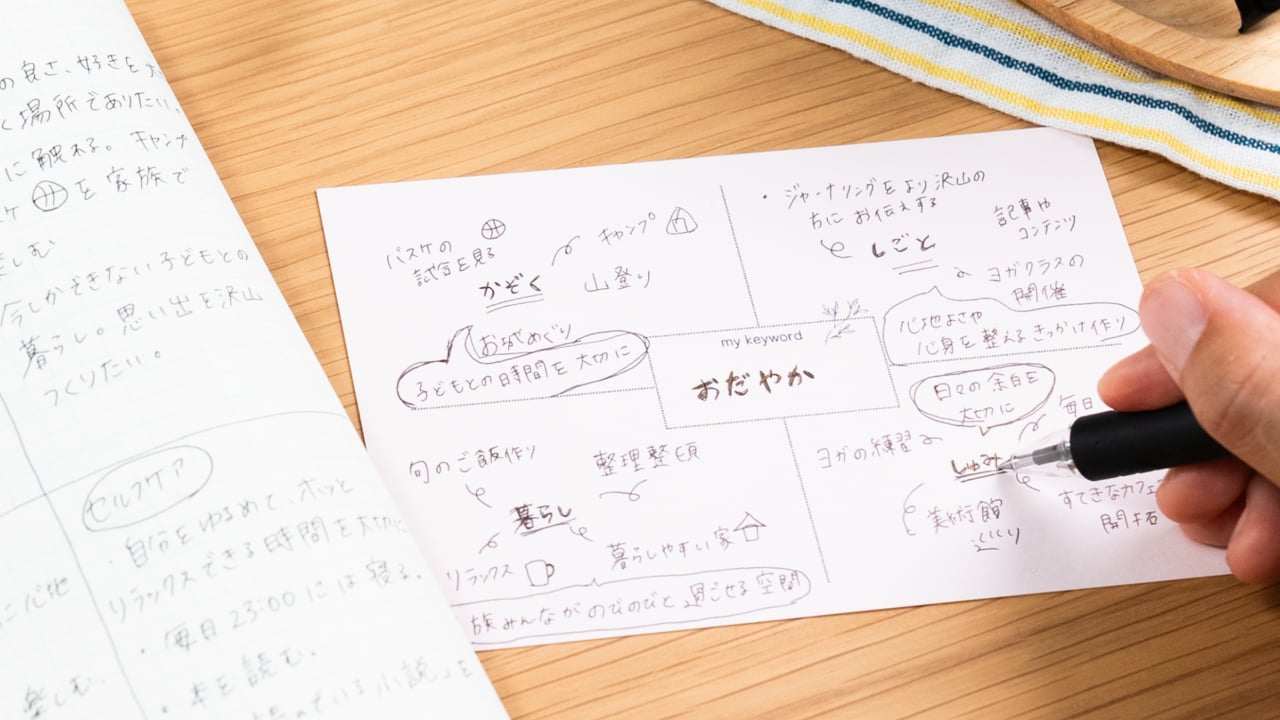 の良さ、好きを
く場所でありたい、
に触れる。キャンプ
を家族で
楽しむ
今しかできない子どもとの
暮らし。思い出を沢山
つくりたい。
セルフケア
・自分をゆるめて、ホッと
リラックスできる時間を大切に
・毎日23:00には寝る。
・本を読む。
小説」を
に心地
楽しむ。
バスケの
試合を見る
キャンプ
かぞく
山登り
おうちめぐり
子どもとの時間を大切に
・ジャーナリングをより沢山の
方にお伝えする
しごと
記事や
コンテンツ
ヨガクラスの
開催
心地よさや
心身を整えるきっかけ作り
my keyword
おだやか
旬のご飯作り
整理整頓
暮らし
リラックス
暮らしやすい家
族みんながのびのびと過ごせる空間
日々の余白を
大切に
毎日
ヨガの練習
しゅみ
美術館
すてきなカフェ
開拓